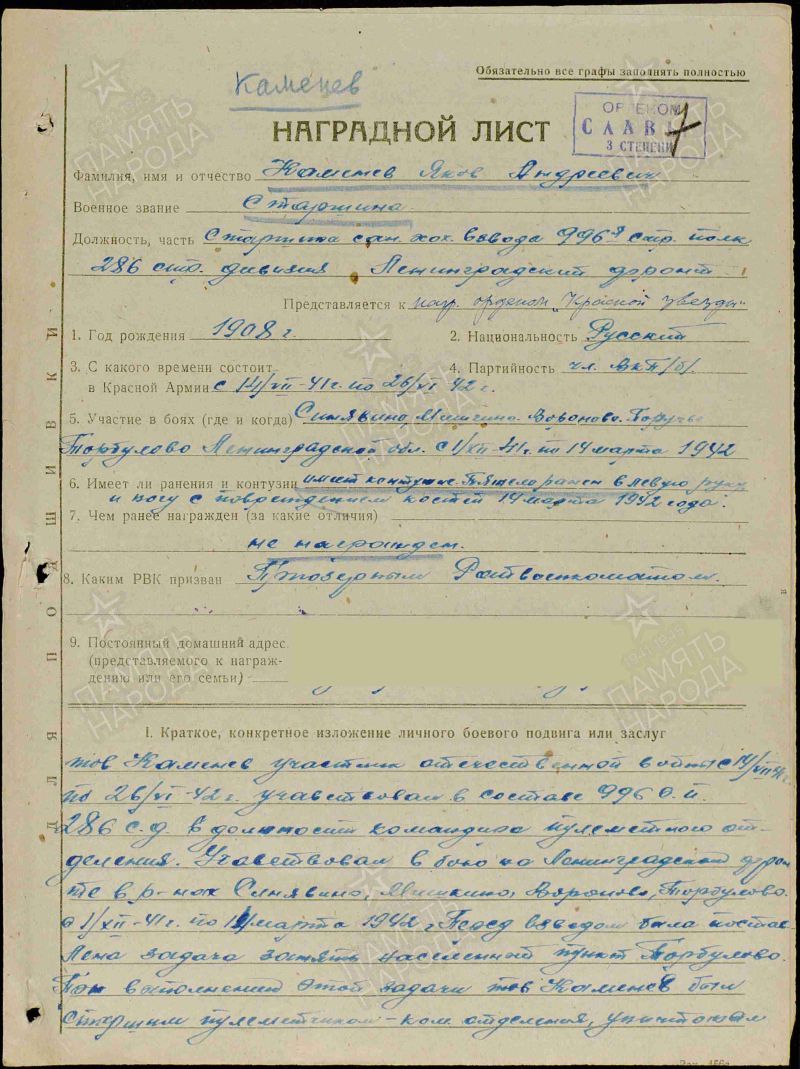 Обязательно все графы заполнять полностью
Каменев
ОРДЕНОМ
СЛАВЫ
3 СТЕПЕНИ
НАГРАДНОЙ ЛИСТ
Фамилия, имя и отчество Каменев Яков Андреевич
Военное звание Старшина
Должность, часть Старшина сан. хоз. взвода 996й стр. полк
286 стр. дивизия Ленинградский фронт
Представляется к нагр. орденом "Красной звезды"
1. Год рождения 1908 г.
2. Национальность Русский
3. С какого времени состоит
в Красной Армии с 14/VII-41 г. по 26/VI 42 г.
4. Партийность чл. ВКП/б/
5. Участие в боях (где и когда) Синявино, Мишкино Вороново
Торбулово Ленинградской обл. с 1/XII-41 г. по 14 марта 1942
6. Имеет ли ранения и контузии имеет контузию Тяжело ранен в левую руку
и ногу с повреждением костей 14 марта 1942 года.
7. Чем ранее награжден (за какие отличия)
не награжден.
8. Каким РВК призван Приозерным Райвоенкоматом.
9. Постоянный домашний адрес
(представляемого к награж-
дению или его семьи)
ДЛЯ ПОДШИВКИ
I. Краткое, конкретное изложение личного боевого подвига или заслуг
тов Каменев участник отечественной войны с 14/VII 41 г.
по 26/VI-42 г. учавствовал в составе 996 с.п.
286 с.д. в должности командира пулеметного от-
деления. Учавствовал в бою на Ленинградском фрон-
те в р-нах Синявино, Мишкино, Вороново, Торбулово.
с 1/XII-41 г. по 14 марта 1942 г Перед взводом была постав-
лена задача занять населенный пункт Торбулово.
При выполнении этой задачи тов Каменев был
старшим пулеметчиком-ком. отделения, уничтожил
ПАМЯТЬ
НАРОДА
1941-1945